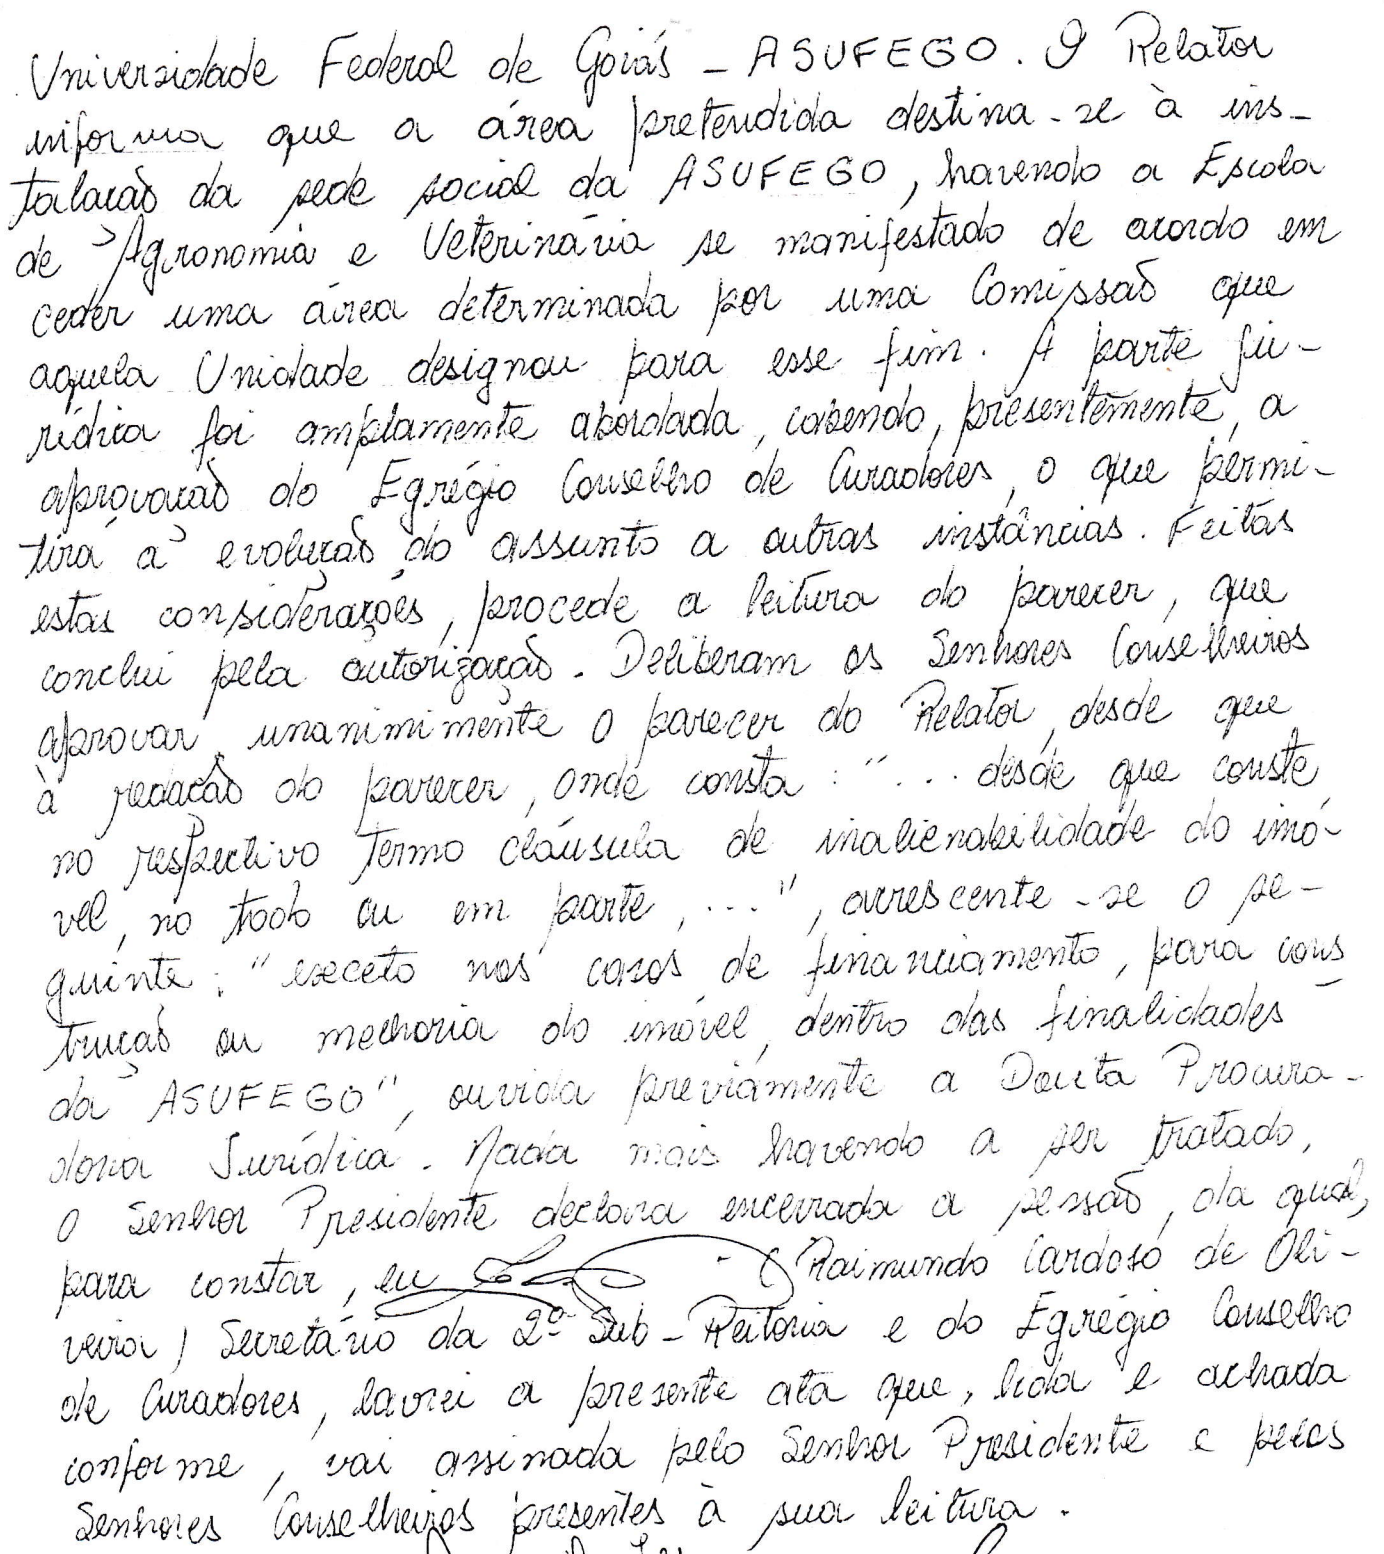 Universidade Federal de Goiás - ASUFEGO. O Relator
informa que a área pretendida destina-se à ins-
talação da sede social da ASUFEGO, havendo a Escola
de Agronomia e Veterinária se manifestado de acordo em
ceder uma área determinada por uma Comissão que
aquela Unidade designou para esse fim. A parte ju-
rídica foi amplamente abordada, cabendo, presentemente, a
aprovação do Egrégio Conselho de Curadores, o que permi-
tirá a evolução do assunto a outras instâncias. Feitas
estas considerações, procede a leitura do parecer, que
conclui pela autorização. Deliberam os Senhores Conselheiros
aprovar unanimimente o parecer do Relator, desde que
à redação do parecer, onde consta: "... desde que conste
no respectivo termo cláusula de inalienabilidade do imó-
vel, no todo ou em parte, ...", acrescente-se o se-
guinte: "exceto nos casos de financiamento, para cons-
trução ou melhoria do imóvel, dentro das finalidades
da ASUFEGO", ouvida previamente a Douta Procura-
doria Jurídica. Nada mais havendo a ser tratado,
o Senhor Presidente declara encerrada a sessão, da qual,
para constar, eu (Raimundo Cardoso de Oli-
veira) Secretário da 2ª Sub-Reitoria e do Egrégio Conselho
de Curadores, lavrei a presente ata que, lida e achada
conforme, vai assinada pelo Senhor Presidente e pelos
Senhores Conselheiros presentes à sua leitura.